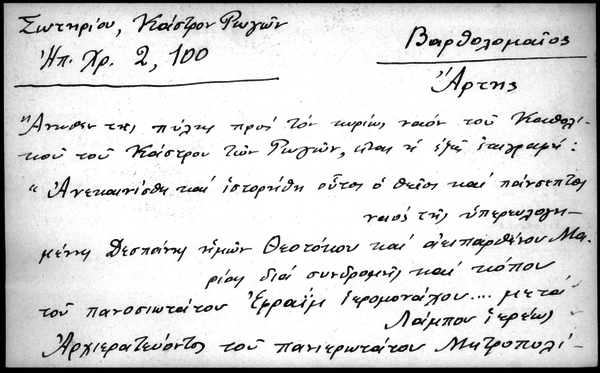 Σωτηρίου, Κάστρον Ρωγῶν
Ἠπ. Χρ. 2, 100
Βαρθολομαῖος
Ἄρτης
"Ἄνωθεν τῆς πύλης πρός τόν κυρίως ναόν τοῦ Καθολι-
κοῦ τοῦ Κάστρου τῶν Ρωγῶν, εἶναι ἡ ἑξῆς ἐπιγραφή:
"Ἀνεκαινίσθη καί ἱστορήθη οὗτος ὁ θεῖος καί πάνσεπτος
ναός τῆς ὑπερευλογη-
μένης Δεσποίνης ἡμῶν Θεοτόκου καί ἀειπαρθένου Μα-
ρίας διά συνδρομῆς καί κόπου
τοῦ πανοσιωτάτου Ἐφραίμ ἱερομονάχου.... μετά
Λάμπου ἱερέως
Ἀρχιερατεύοντος τοῦ πανιερωτάτου Μητροπολί-